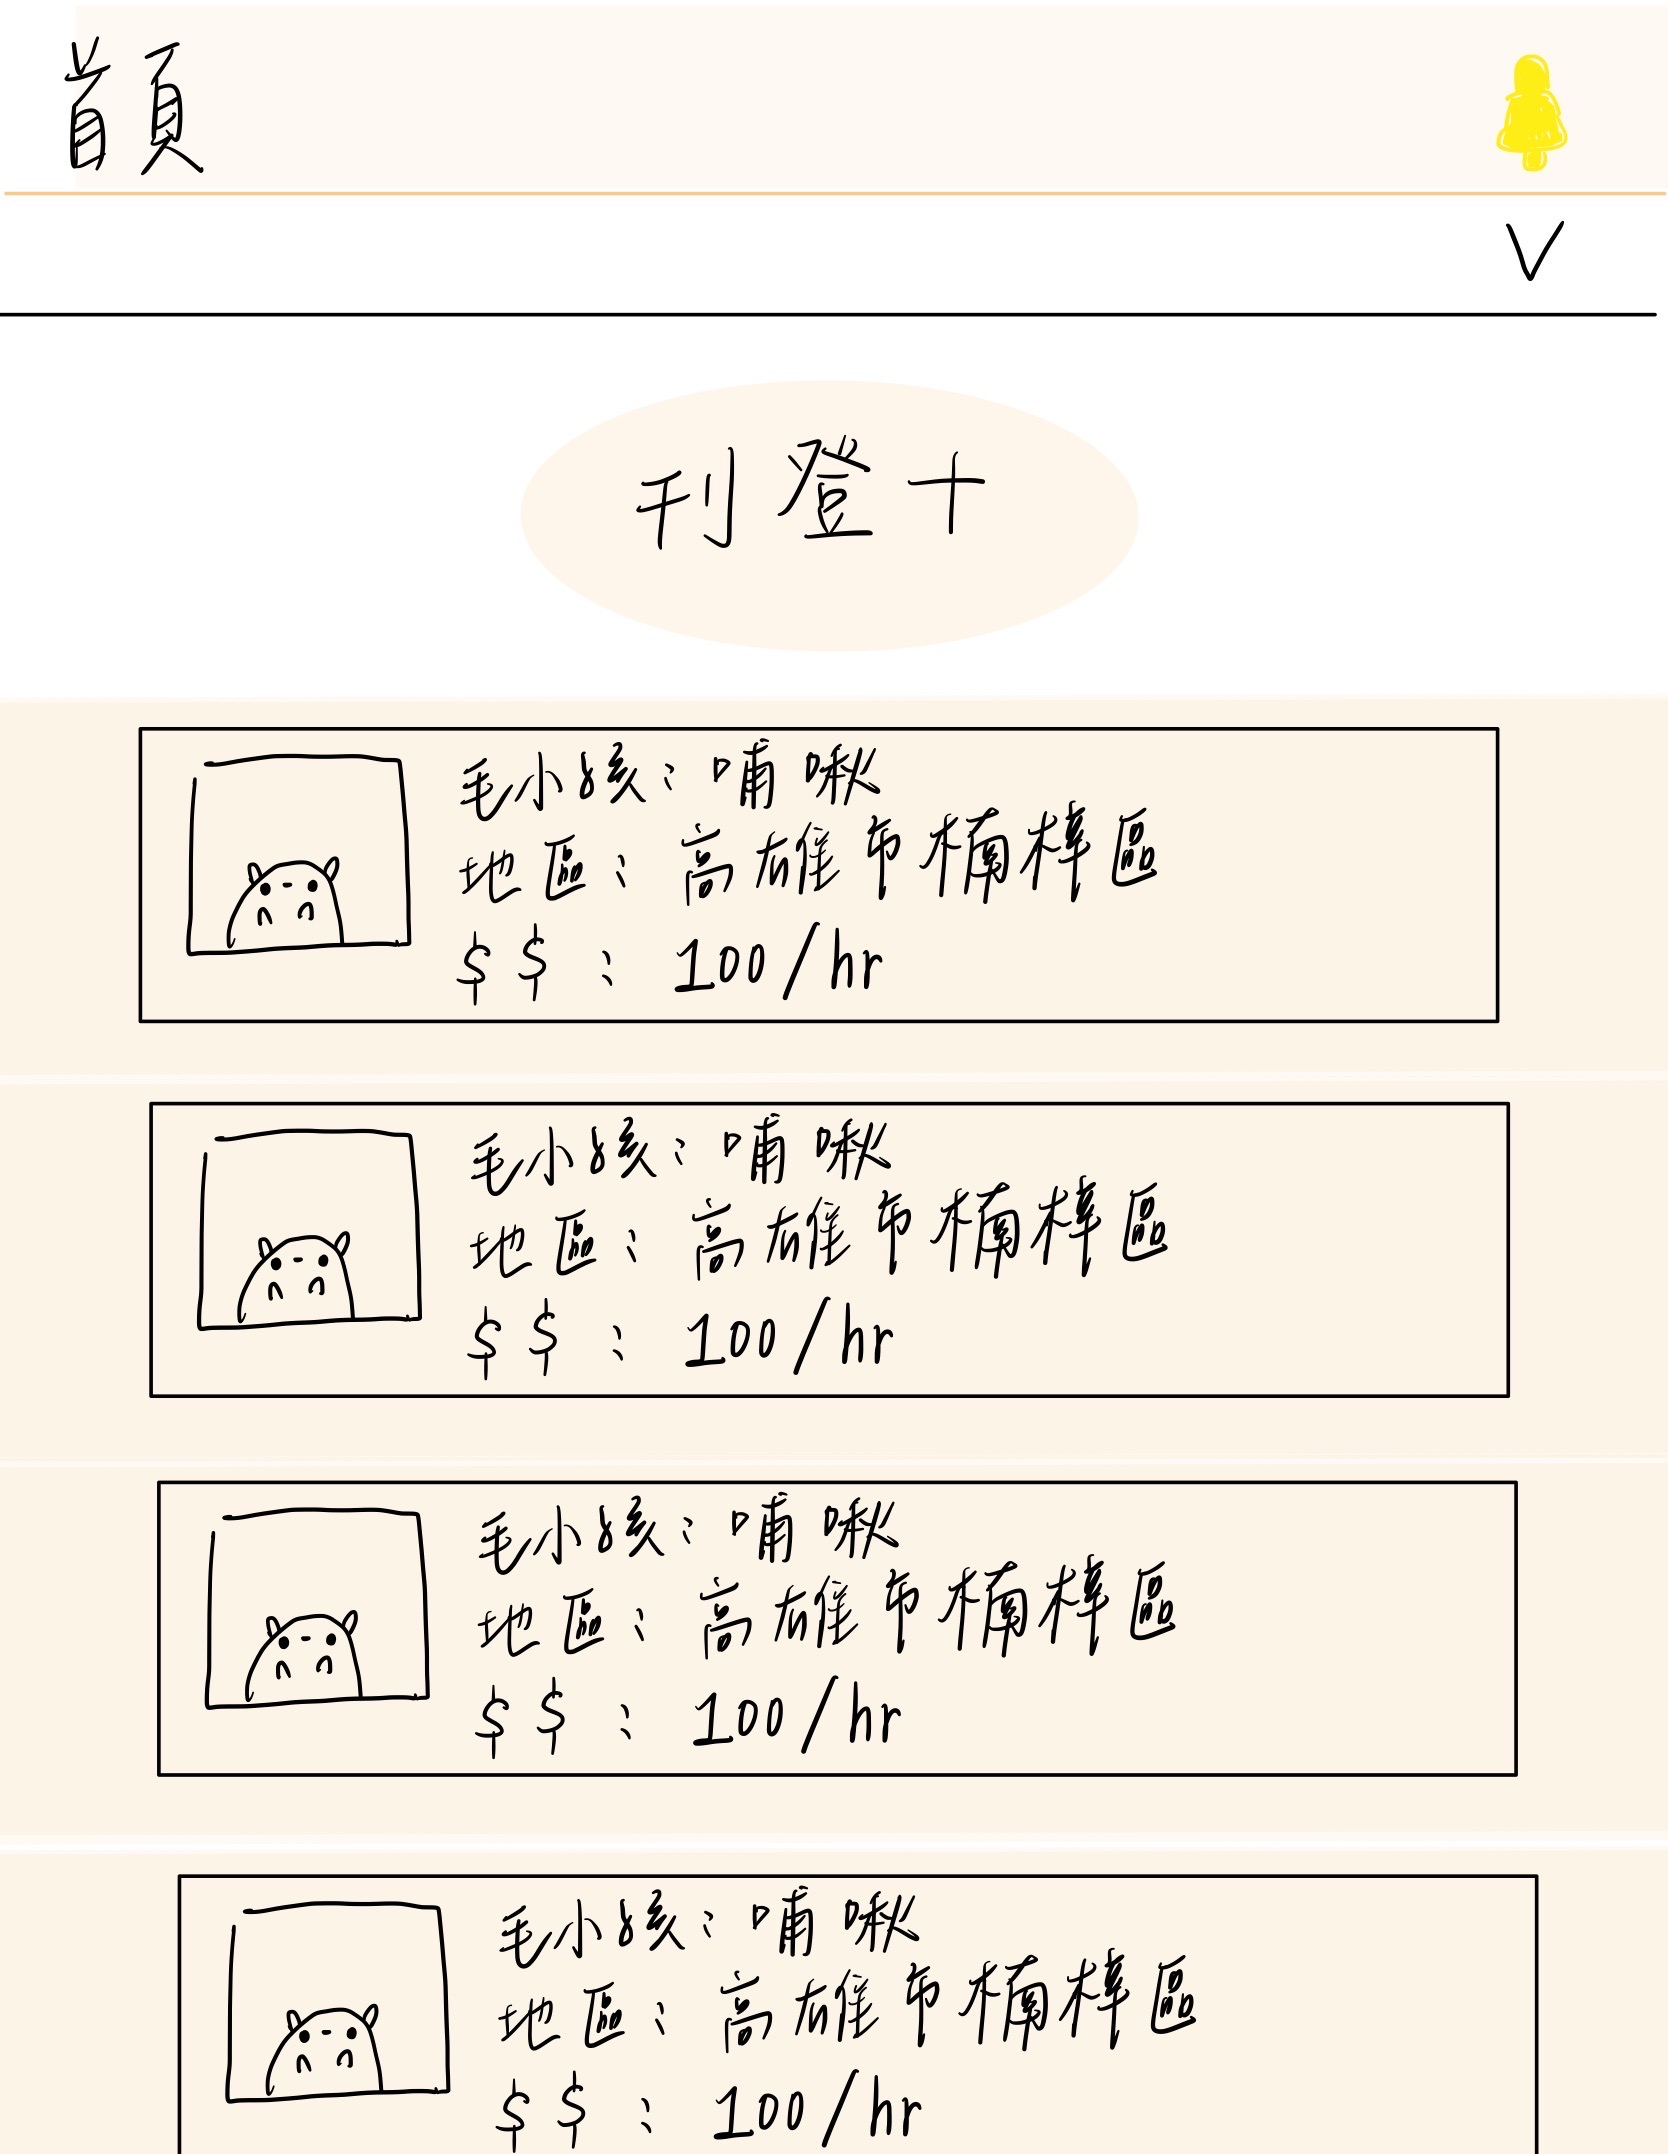 首頁
V
刊登+
毛小孩:哺啾
地區:高雄市楠梓區
$$:100/hr
毛小孩:哺啾
地區:高雄市楠梓區
$$:100/hr
毛小孩:哺啾
地區:高雄市楠梓區
$$:100/hr
毛小孩:哺啾
地區:高雄市楠梓區
$$:100/hr